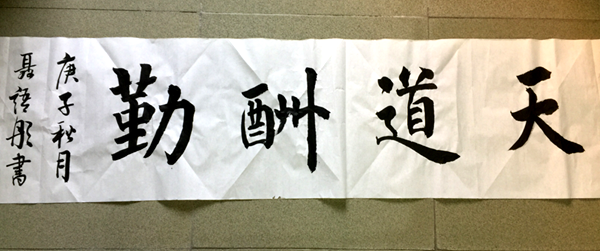 天道酬勤
庚子秋月
聂語彤書